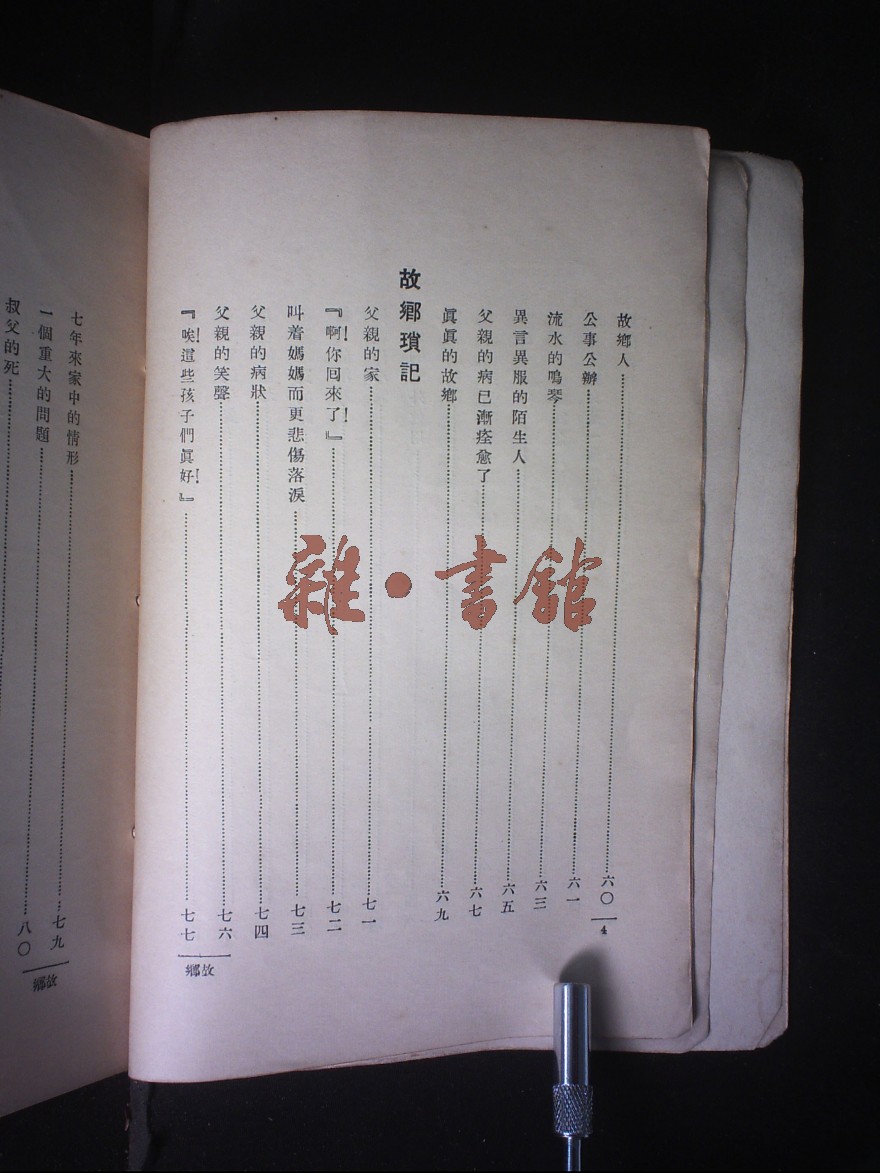 故鄉人……六〇
公事公辦……六一
流水的鳴琴……六三
異言異服的陌生人……六五
父親的病已漸痊愈了……六七
眞眞的故鄉……六九
故鄉瑣記
父親的家……七一
『啊！你回來了！』……七二
叫着媽媽而更悲傷落淚……七三
父親的病狀……七四
父親的笑聲……七六
『唉！這些孩子們眞好！』……七七
4
故鄉
七年來家中的情形……七九
一個重大的問題……八〇
叔父的死……
故鄉
雜·書館